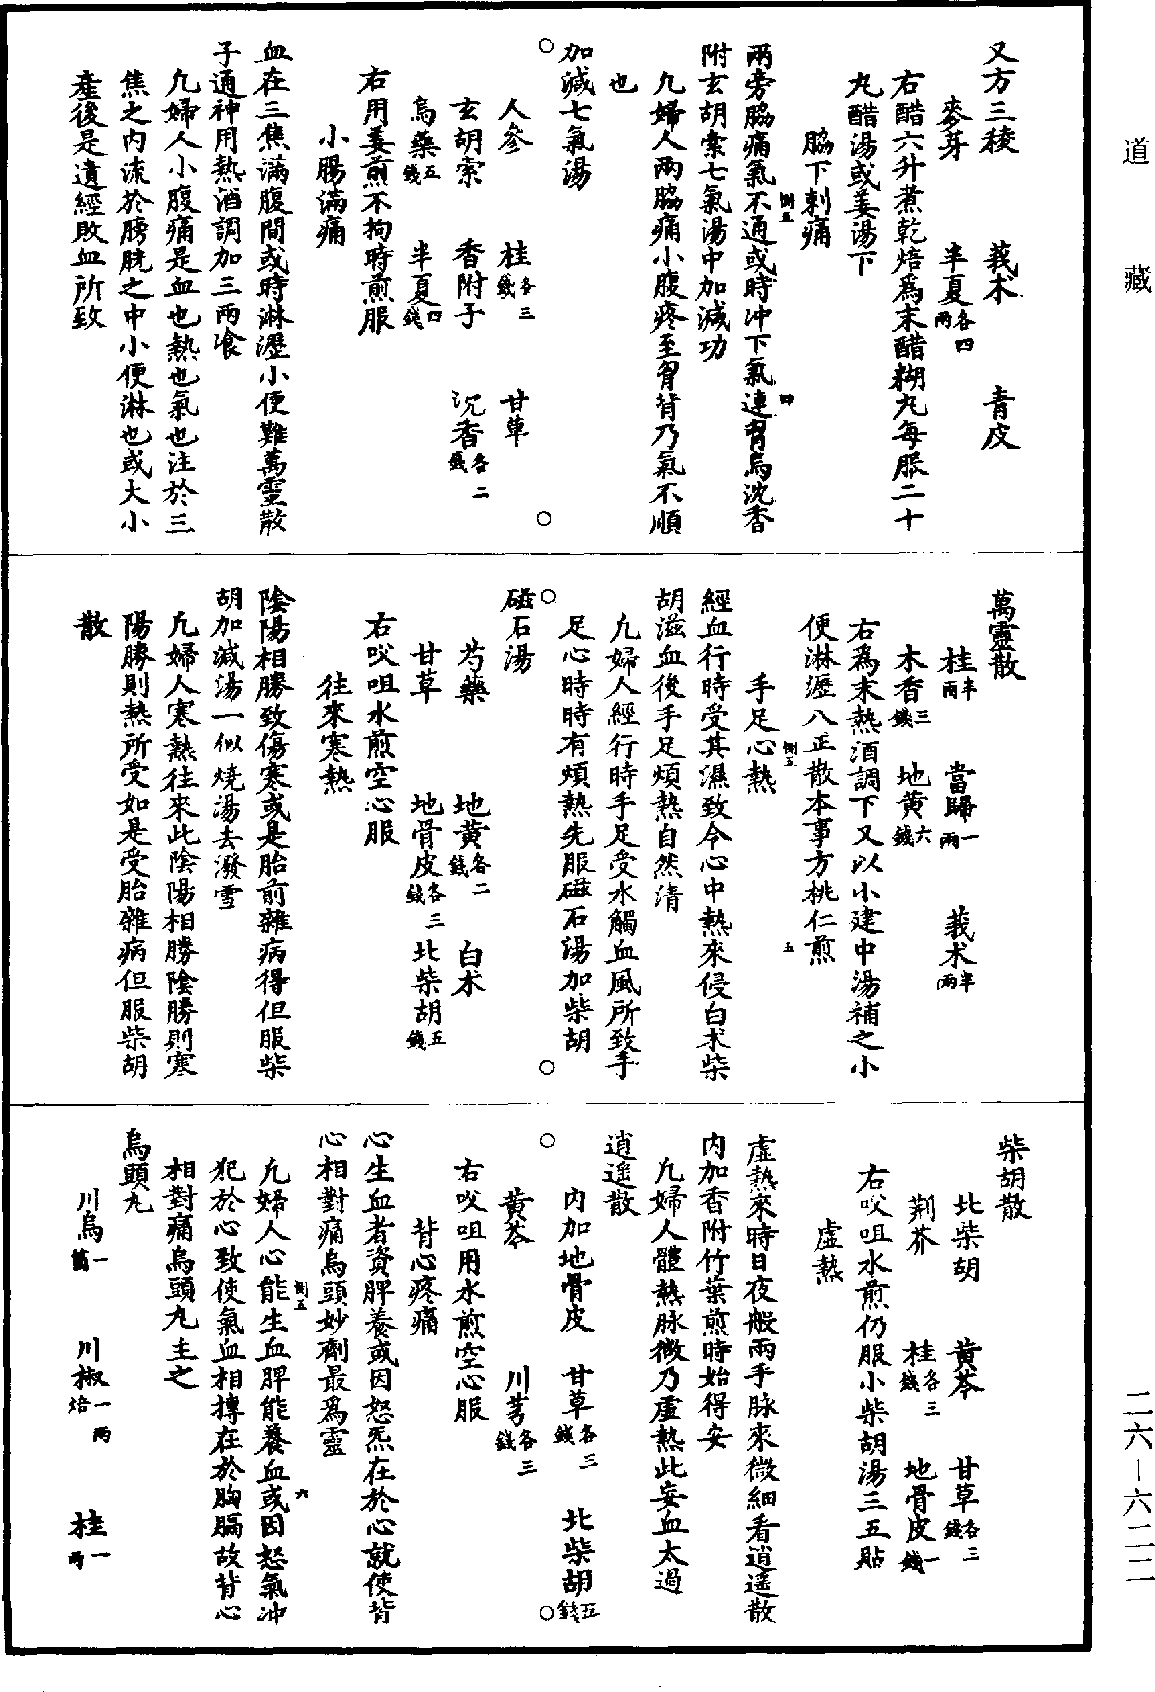 道藏
又方三稜　莪朮　青皮
麥芽　半夏各四兩
右醋六升煮乾焙爲末醋糊丸每服二十
丸醋湯或姜湯下
脇下刺痛
兩旁脇痛氣不通或時沖下氣連胷烏沈香
附玄胡索七氣湯中加減功
凢婦人兩脇痛小腹疼至胷背乃氣不順
也
加減七氣湯
人參　桂各三錢　甘草
玄胡索　香附子　沉香各二錢
烏藥五錢　半夏四錢
右用姜煎不拘時煎服
小腸滿痛
血在三焦滿腹間或時淋瀝小便難萬靈散
子通神用熱酒調加三兩飡
凢婦人小腹痛是血也熱也氣也注於三
焦之内流於膀胱之中小便淋也或大小
産後是遺經敗血所致
萬靈散
桂半兩　當歸一兩　莪朮半兩
木香三錢　地黄六錢
右爲末熱酒調下又以小建中湯補之小
便淋瀝八正散本事方桃仁煎
手足心熱
經血行時受其濕致令心中熱來侵白朮柴
胡滋血後手足煩熱自然清
凢婦人經行時手足受水觸血風所致手
足心時時有煩熱先服磁石湯加柴胡
磁石湯
芍藥　地黄各二錢　白朮
甘草　地骨皮各三錢　北柴胡五錢
右㕮咀水煎空心服
往來寒熱
陰陽相勝致傷寒或是胎前雜病得但服柴
胡加減湯一似燒湯去潑雪
凢婦人寒熱往來此陰陽相勝陰勝則寒
陽勝則熱所受如是受胎雜病但服柴胡
散
柴胡散
北柴胡　黄芩　甘草各三錢
荆芥　桂各三錢　地骨皮一錢
右㕮咀水煎仍服小柴胡湯三五貼
虚熱
虚熱來時日夜般兩手脉來微細看逍遥散
内加香附竹葉煎時始得安
凢婦人體熱脉微乃虚熱此妄血太過
逍遥散
内加地骨皮　甘草各三錢　北柴胡五錢
黄芩　川芎各三錢
右㕮咀用水煎空心服
背心疼痛
心生血者資脾養或因怒炁在於心就使背
心相對痛烏頭妙劑最爲靈
凢婦人心能生血脾能養血或因怒氣沖
犯於心致使氣血相摶在於胸膈故背心
相對痛烏頭丸主之
烏頭丸
川烏一箇　川椒一兩焙　桂一兩
二六—六二二